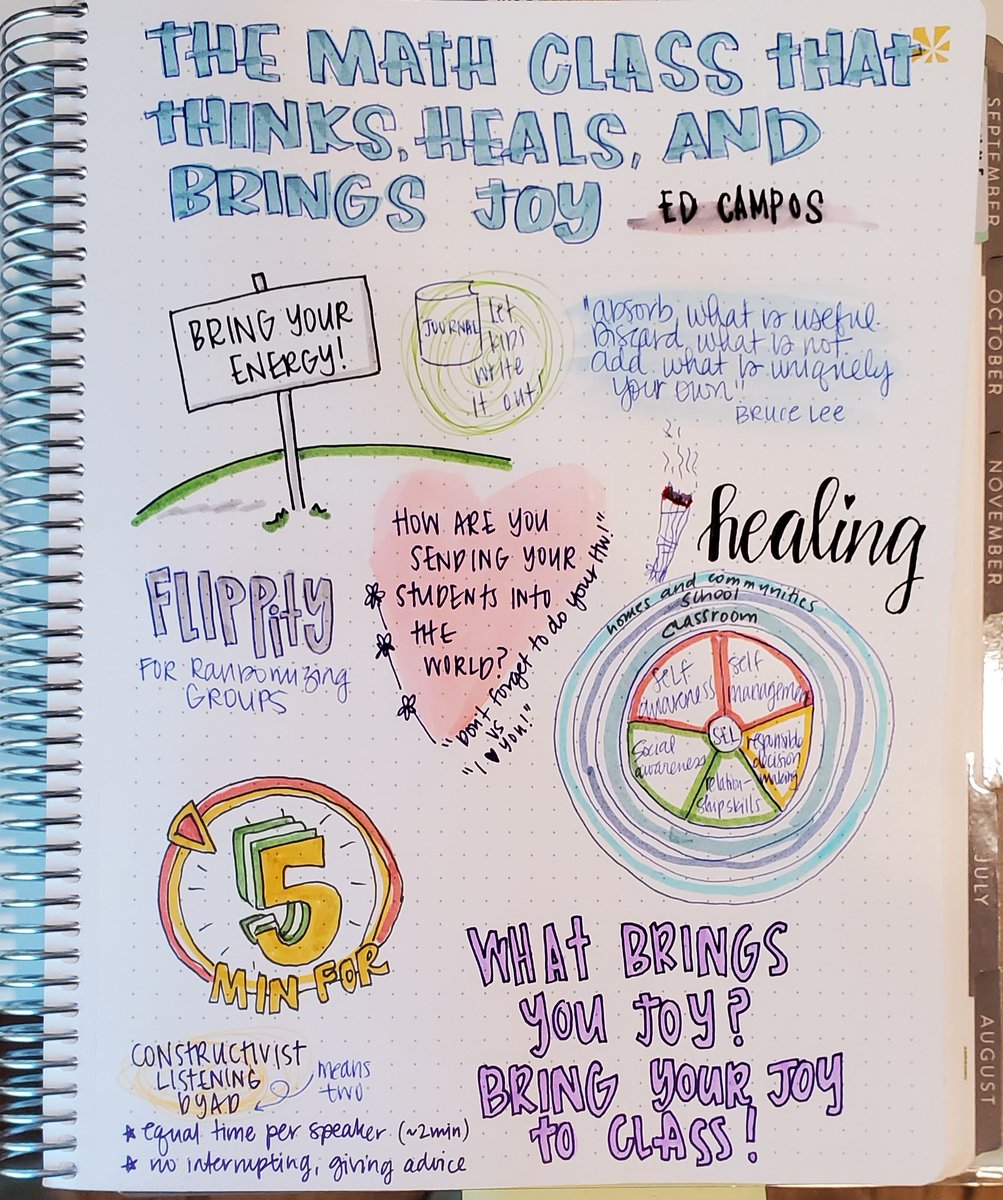 THE MATH CLASS THAT
THINKS, HEALS, AND
BRINGS JOY
ED CAMPOS
BRING YOUR
ENERGY!
JOURNAL
Let
kids
write
it out!
"absorb what is useful.
Discard what is not.
add what is uniquely
your own."
BRUCE LEE
healing
HOW ARE YOU
SENDING YOUR
STUDENTS INTO
THE
WORLD?
"Don't forget to do your HW!"
vs
"I ♥ you!"
FLIPPITY
FOR RANDOMIZING
GROUPS
homes and communities
school
classroom
self
awareness
self
management
SEL
social
awareness
responsible
decision
making
relation-
ship skills
5
MIN FOR
CONSTRUCTIVIST
LISTENING
DYAD
means
two
* equal time per speaker (~2min)
* no interrupting, giving advice
WHAT BRINGS
YOU JOY?
BRING YOUR JOY
TO CLASS!
SEPTEMBER
OCTOBER
NOVEMBER
JULY
AUGUST